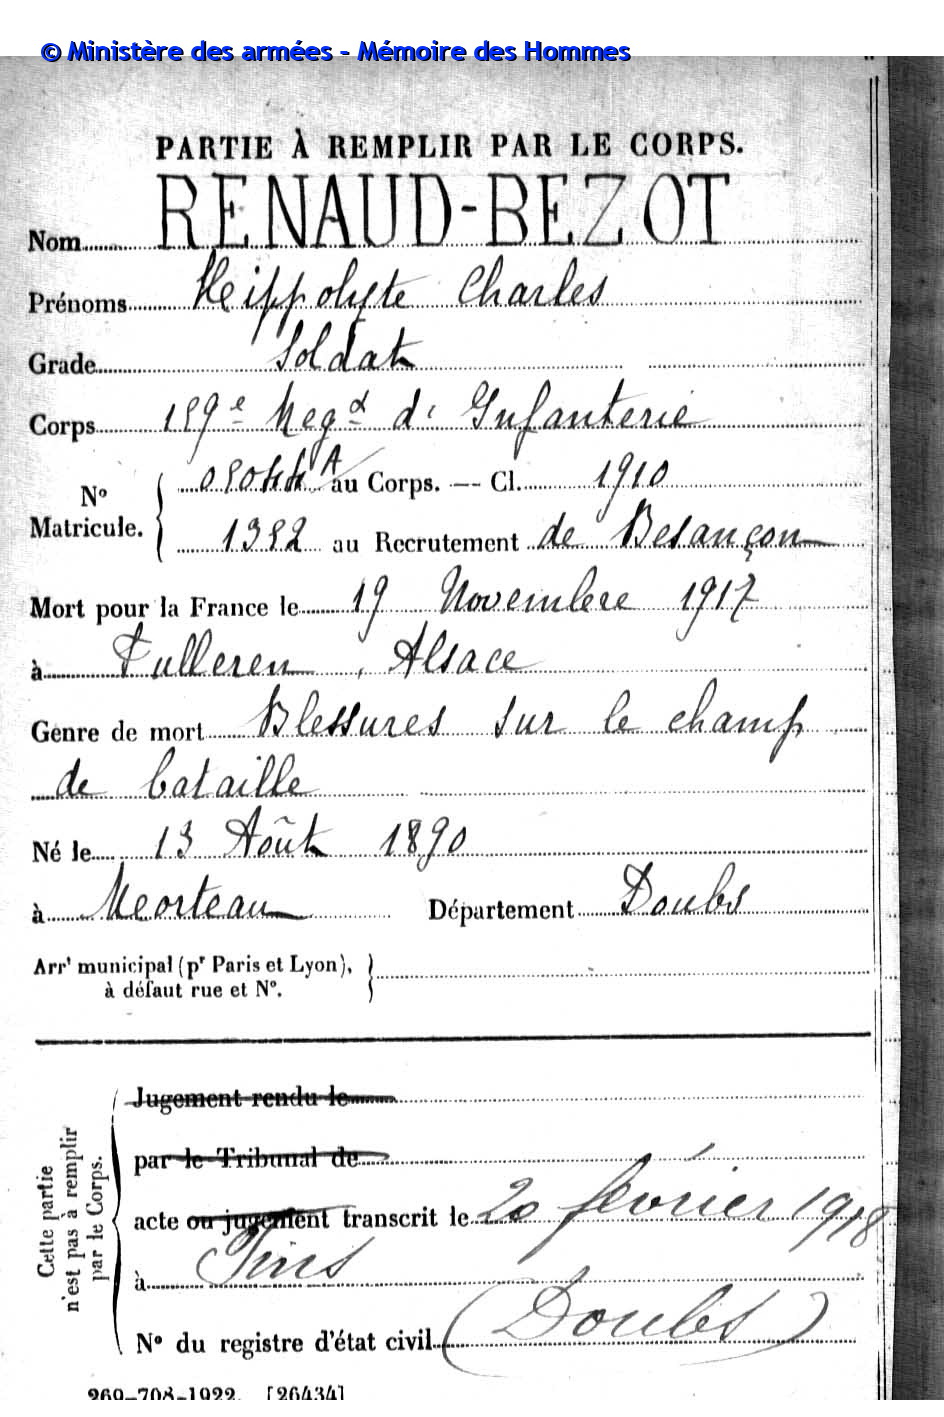 © Ministère des armées - Mémoire des Hommes
PARTIE À REMPLIR PAR LE CORPS.
Nom RENAUD-BEZOT
Prénoms Hippolyte Charles
Grade Soldat
Corps 159e Regt d'Infanterie
No Matricule. au Corps. — Cl. 1910
1352 au Recrutement de Besançon
Mort pour la France le 19 Novembre 1917
à Fulleren, Alsace
Genre de mort Blessures sur le champ
de bataille
Né le 13 Août 1890
à Morteau Département Doubs
Arrt municipal (pr Paris et Lyon),
à défaut rue et No.
Cette partie
n'est pas à remplir
par le Corps.
Jugement rendu le
par le Tribunal de
acte ou jugement transcrit le 20 février 1918
à
No du registre d'état civil (Doubs)
269-708-1922. [26434]